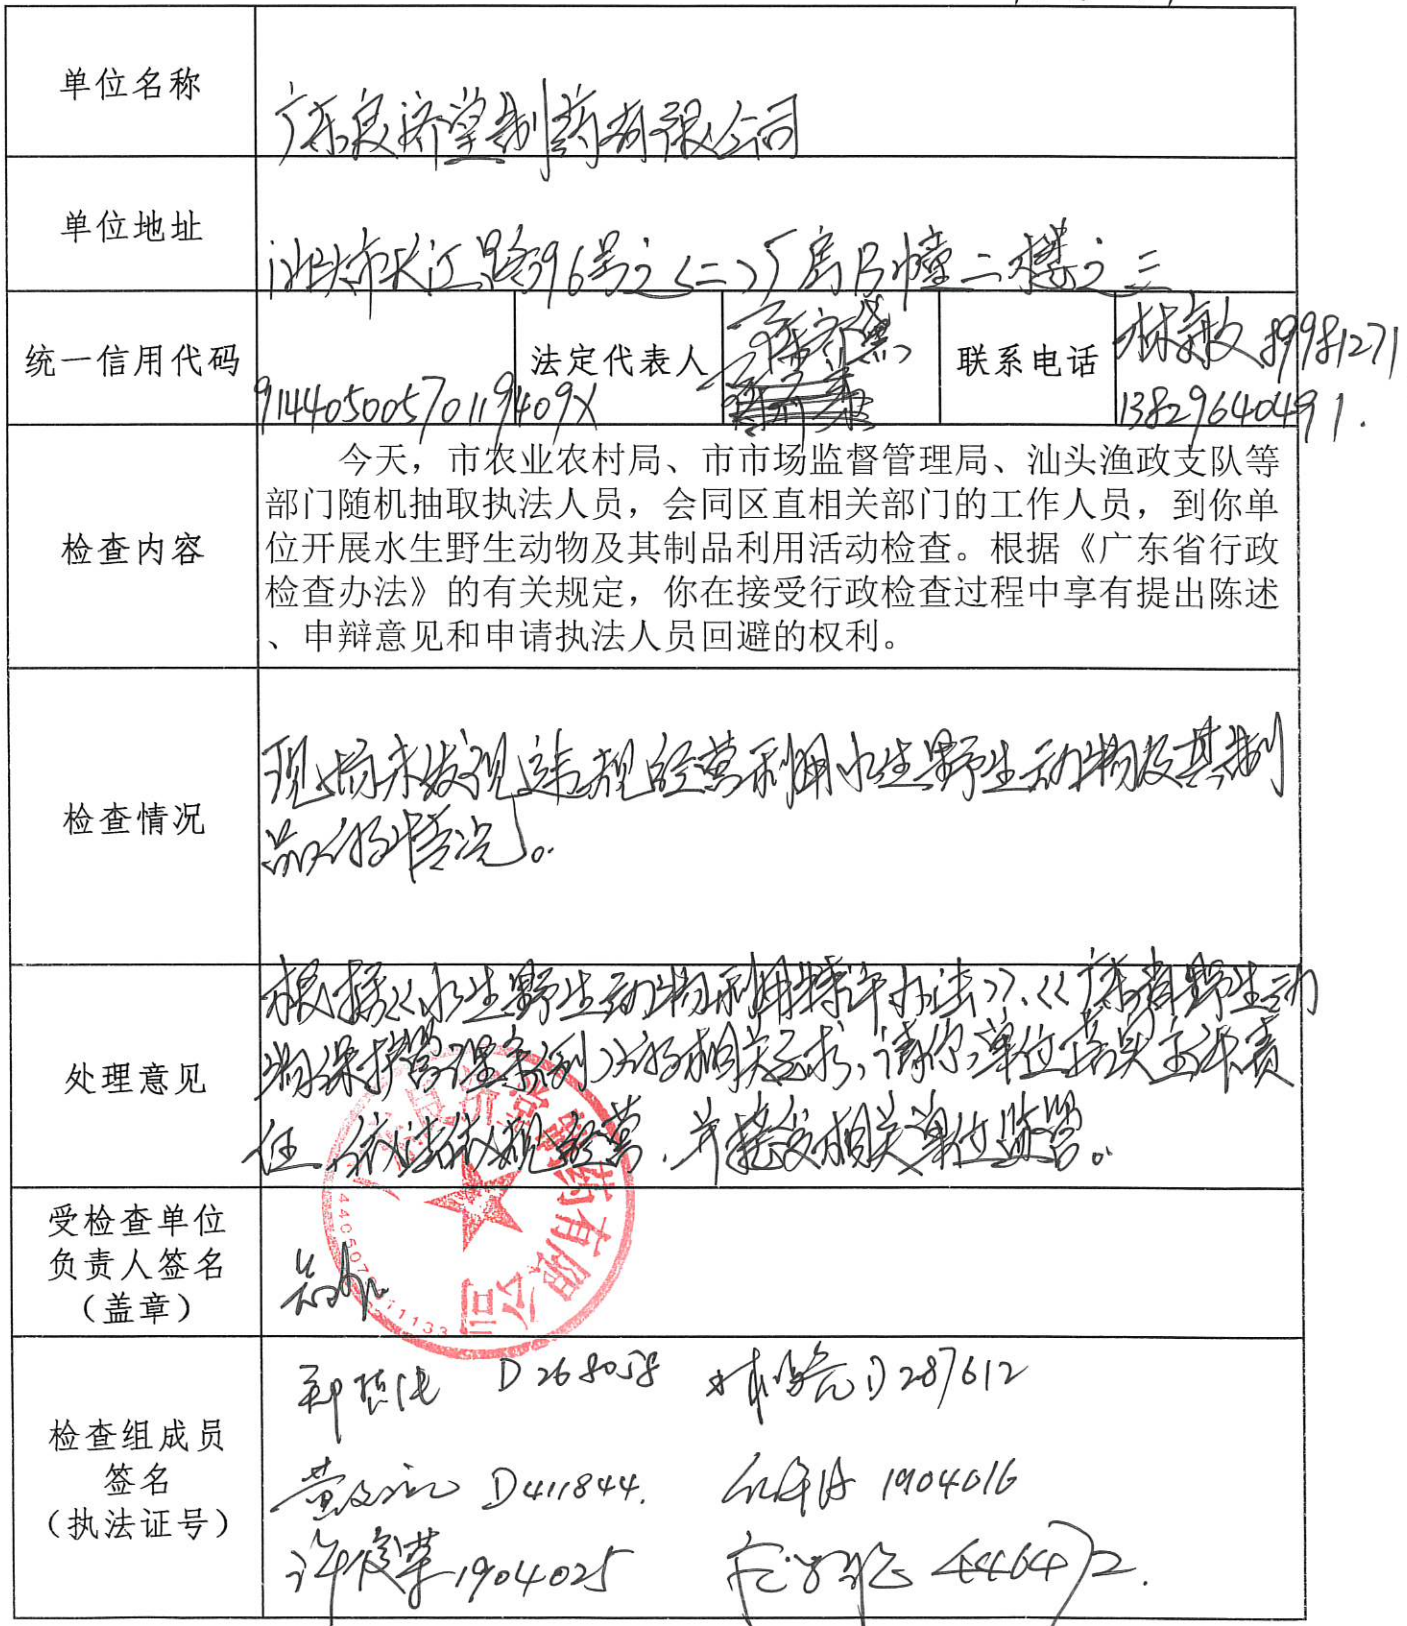 单位名称
广东良济堂制药有限公司
单位地址
汕头市长江路96号之(二)厂房B幢二楼之三
统一信用代码
91440500570119409X
法定代表人
联系电话
林敏 89981271
13829640491.
检查内容
今天，市农业农村局、市市场监督管理局、汕头渔政支队等
部门随机抽取执法人员，会同区直相关部门的工作人员，到你单
位开展水生野生动物及其制品利用活动检查。根据《广东省行政
检查办法》的有关规定，你在接受行政检查过程中享有提出陈述
、申辩意见和申请执法人员回避的权利。
检查情况
现场未发现违规经营利用水生野生动物及其制
品的情况。
处理意见
根据《水生野生动物利用特许办法》、《广东省野生动
物保护管理条例》的相关要求，请你单位落实主体责
任，依法依规经营，并接受相关单位监管。
受检查单位
负责人签名
（盖章）
制药有限公司
检查组成员
签名
（执法证号）
D268058
D287612
D411844.
1904016
许俊荣 1904025
446472.